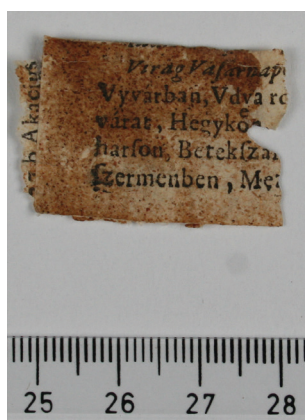 Virág Vaſárnap
Vyvárban, Vdva ro
várat, Hegykő
harſon, Betekſza
ſzermenben, Me
b Akacius
25 26 27 28